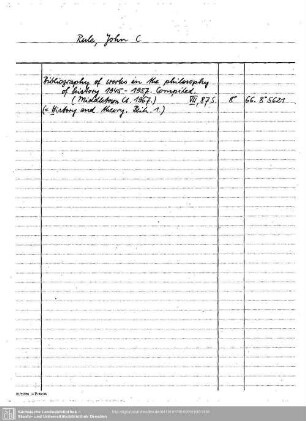 Rule, John C
Bibliography of works in the philosophy
of history 1945-1957. Compiled.
(Middletown Ct. 1967.) VII, 87 S. 8° 66. 8° 5621
(= History and theory. Beih. 1.)
Sächsische Landesbibliothek -
Staats- und Universitätsbibliothek Dresden